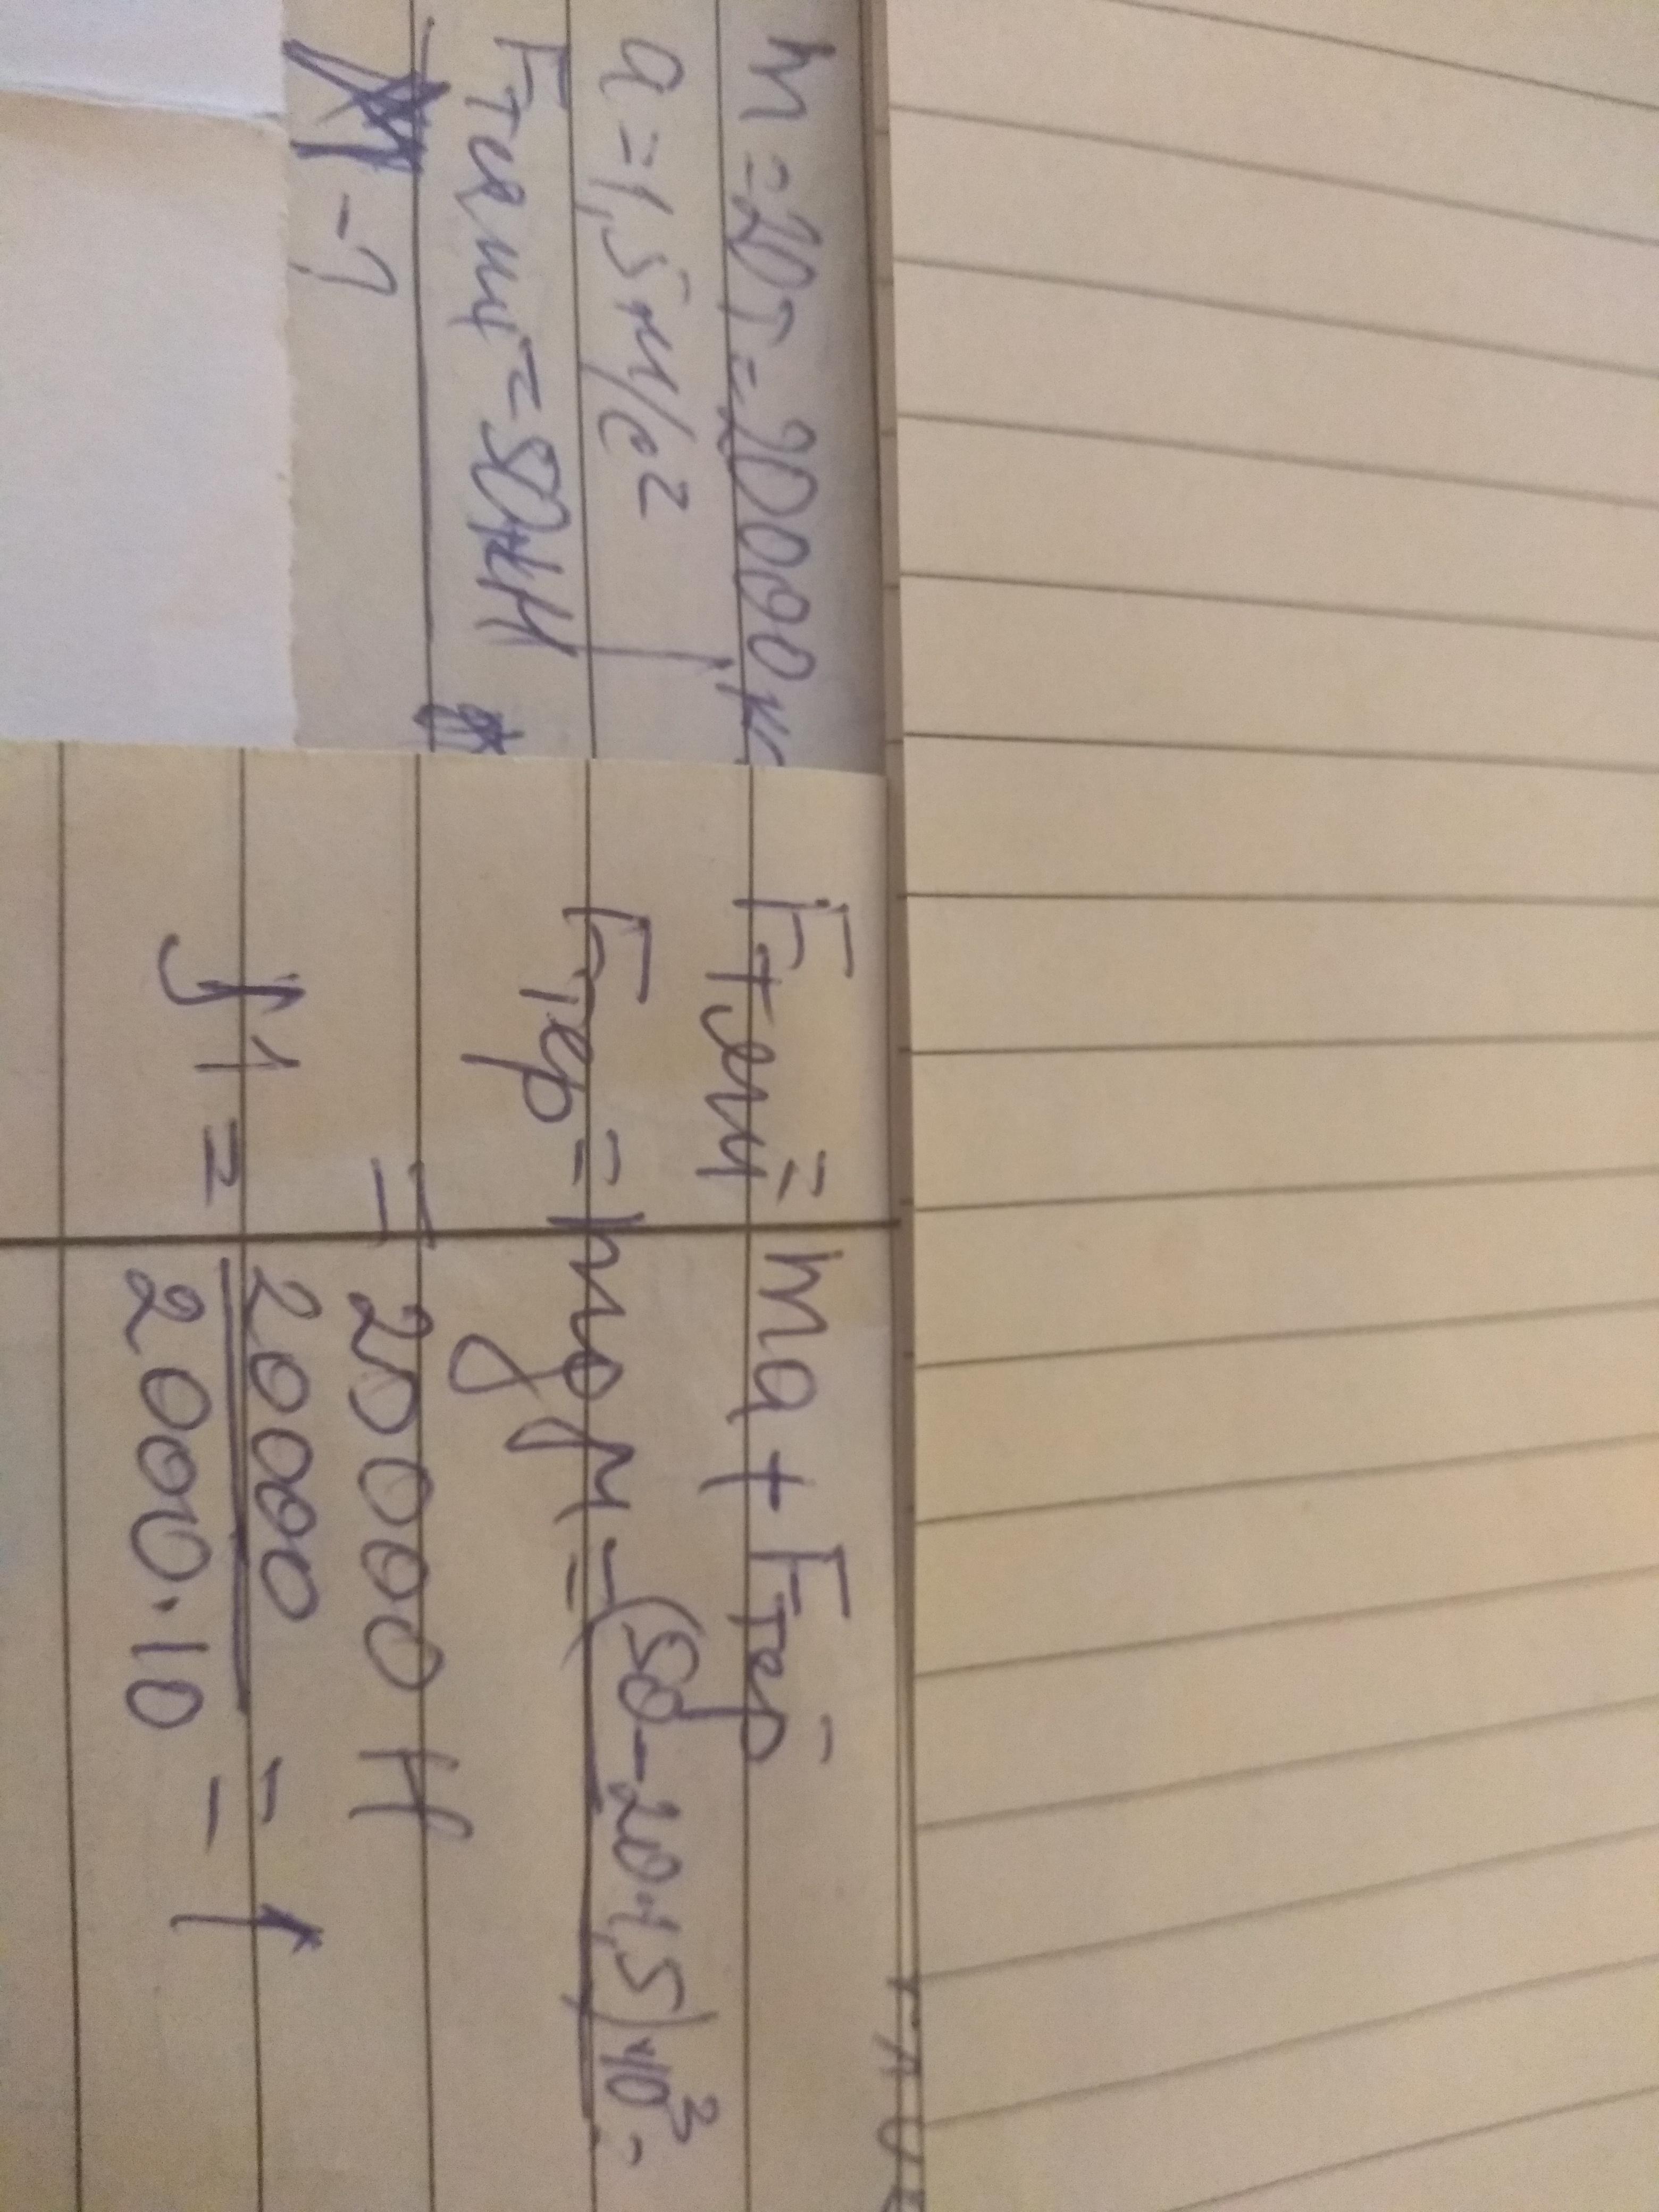 m = 20т = 20000к
a = 1,5 м/с²
Fтяги = 50кН
- ?
Fтяги = ma + Fтр
Fтер = mgμ = (50 - 20·1,5)·10³ =
= 20000 Н
μ = 20000 / 2000·10 = 1